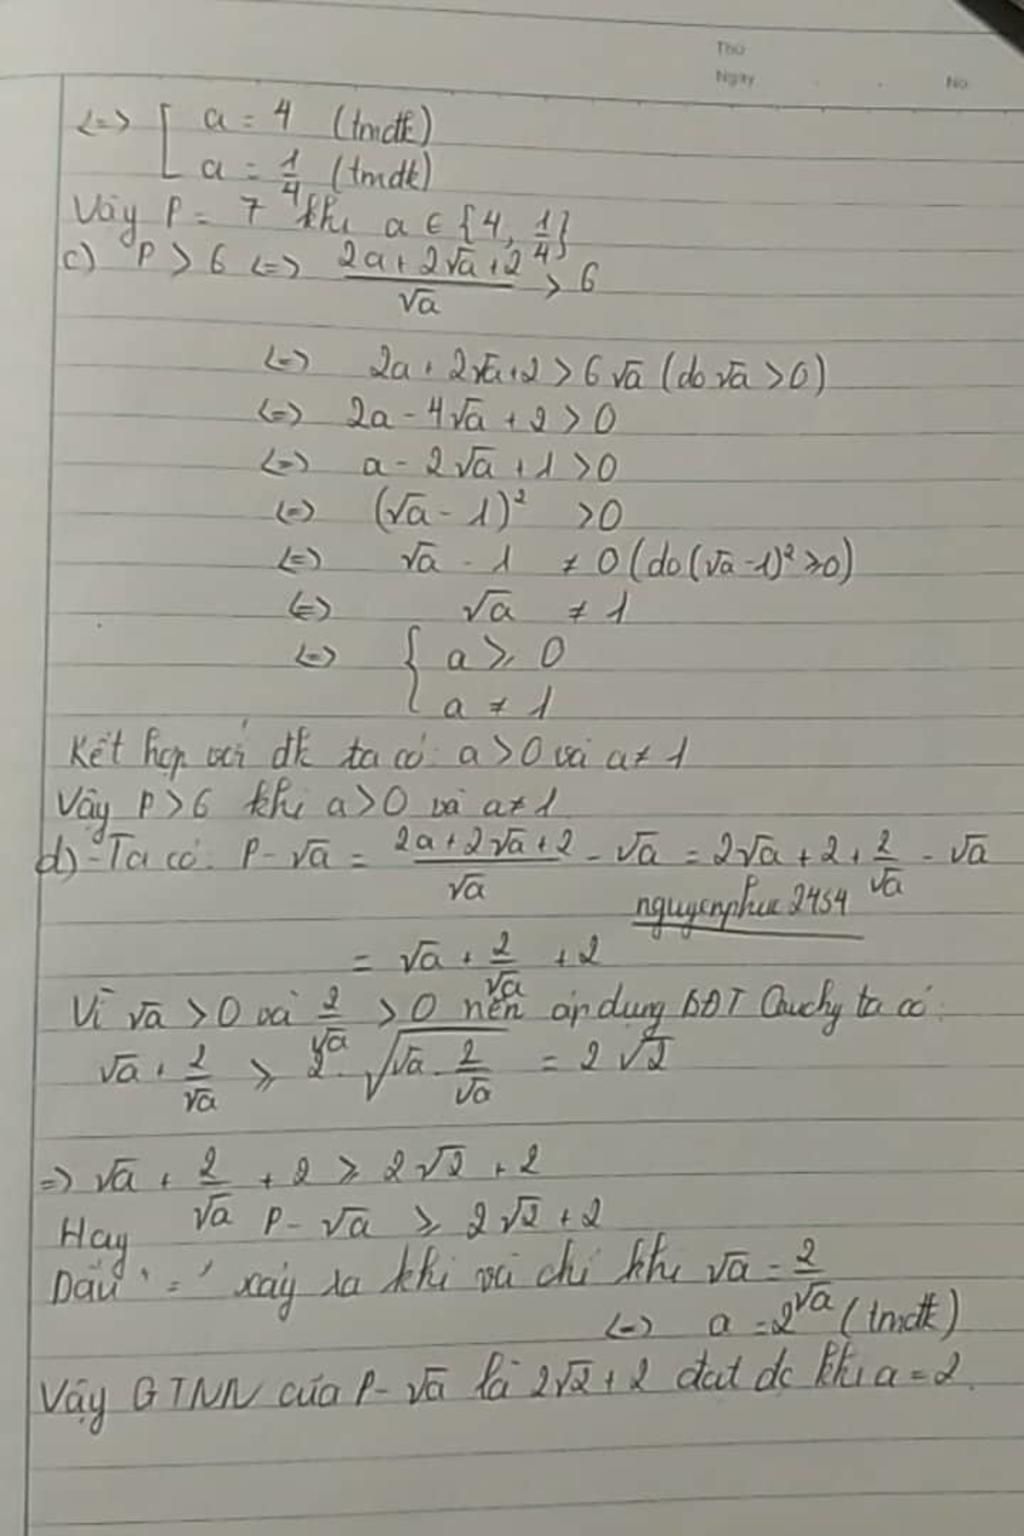 Thứ
Ngày No
<=> [ a = 4 (tmđk)
a = 1/4 (tmđk)
Vậy P = 7 khi a ∈ {4, 1/4}
c) P > 6 <=> (2a + 2√a + 2)/√a > 6
<=> 2a + 2√a + 2 > 6√a (do √a > 0)
<=> 2a - 4√a + 2 > 0
<=> a - 2√a + 1 > 0
<=> (√a - 1)² > 0
<=> √a - 1 ≠ 0 (do (√a - 1)² ≥ 0)
<=> √a ≠ 1
<=> { a ≥ 0
a ≠ 1
Kết hợp với đk ta có: a > 0 và a ≠ 1
Vậy P > 6 khi a > 0 và a ≠ 1
d) - Ta có: P - √a = (2a + 2√a + 2)/√a - √a = 2√a + 2 + 2/√a - √a
nguyenphuc2454
= √a + 2/√a + 2
Vì √a > 0 và 2/√a > 0 nên áp dụng BĐT Cauchy ta có:
√a + 2/√a ≥ 2.√(√a . 2/√a) = 2√2
=> √a + 2/√a + 2 ≥ 2√2 + 2
Hay P - √a ≥ 2√2 + 2
Dấu '=' xảy ra khi và chỉ khi √a = 2/√a
<=> a = 2 (tmđk)
Vậy GTNN của P - √a là 2√2 + 2 đạt đc khi a = 2.